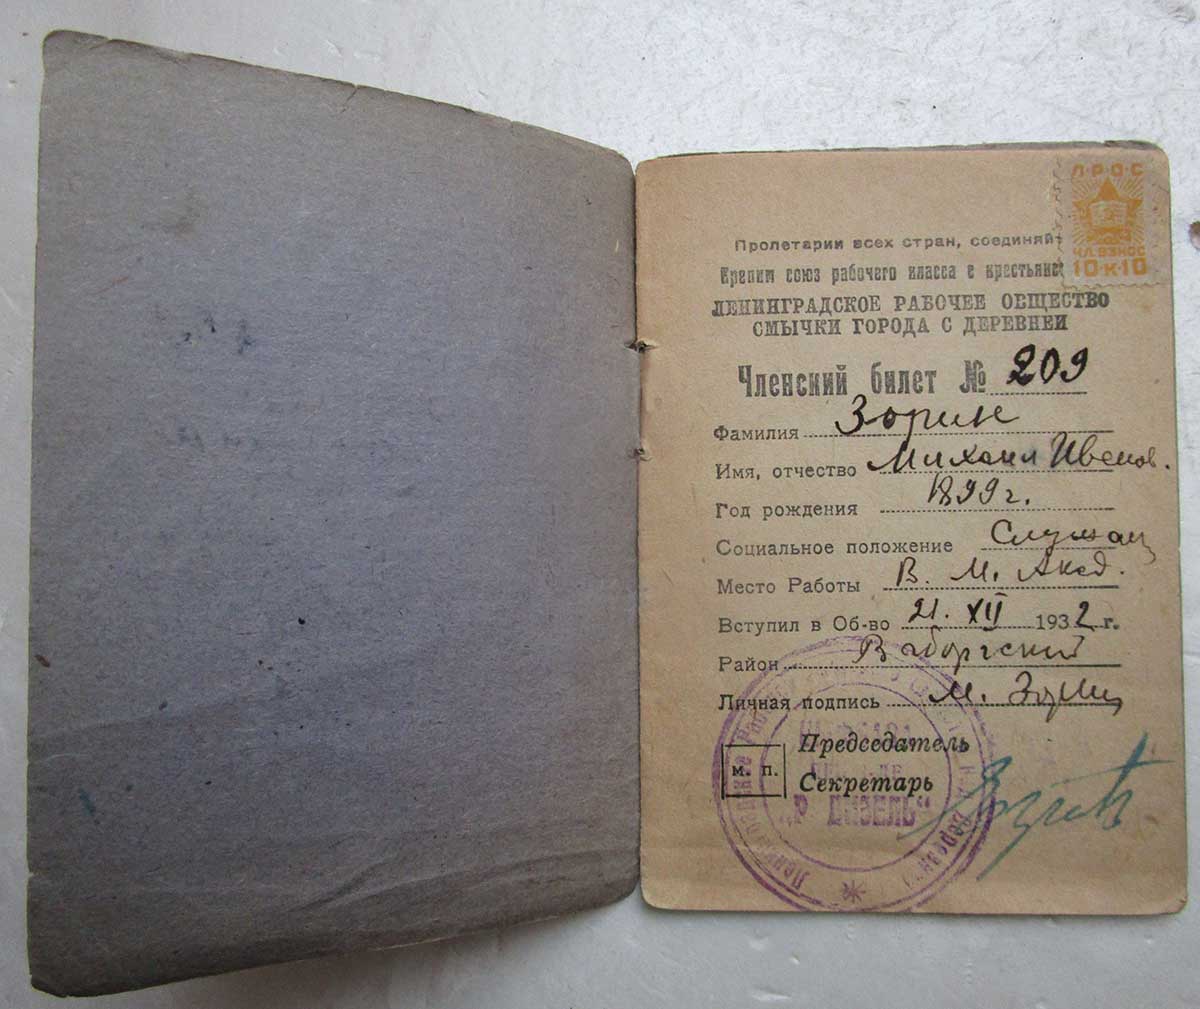 Л·Р·О·С
ЧЛ. ВЗНОС
10·К·10
Пролетарии всех стран, соединяй
Крепим союз рабочего класса с крестьянс
ЛЕНИНГРАДСКОЕ РАБОЧЕЕ ОБЩЕСТВО
СМЫЧКИ ГОРОДА С ДЕРЕВНЕЙ
Членский билет № 209
Фамилия Зорин
Имя, отчество Михаил Иванов.
Год рождения 1899 г.
Социальное положение Служащ
Место Работы В. М. Акад.
Вступил в Об-во 21. XII 1932 г.
Район Выборгский
Личная подпись М. Зорин
Председатель
м. п. Секретарь
ДИЗЕЛЬ"